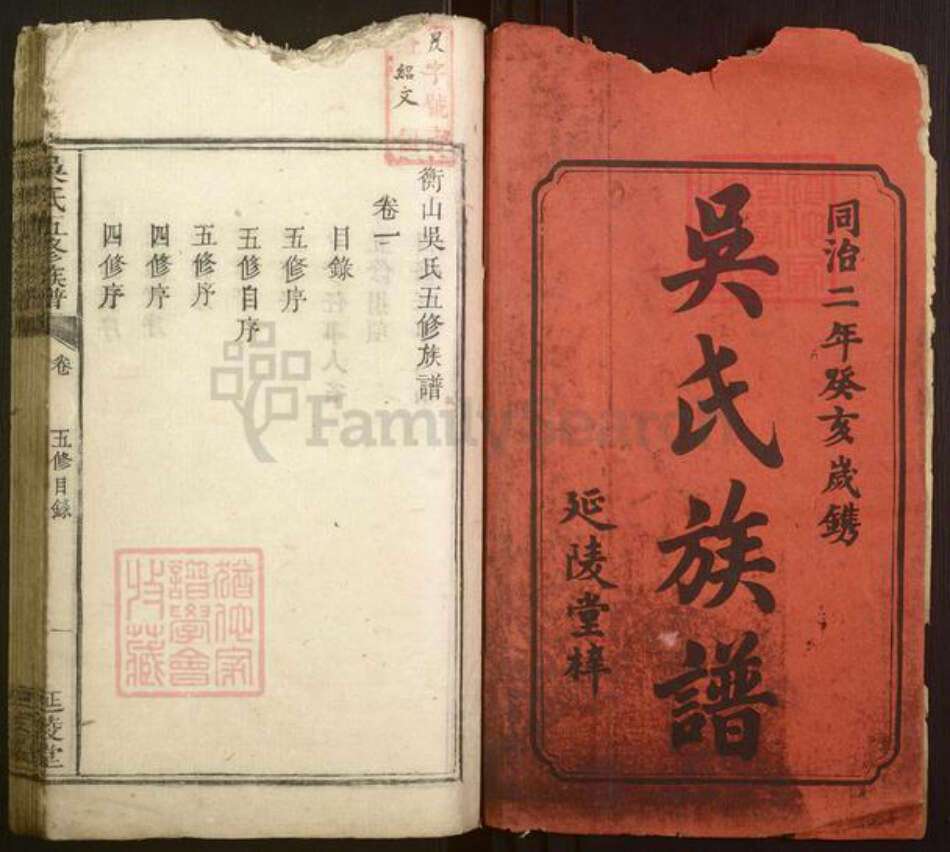 同治二年癸亥歲鐫
吳氏族譜
延陵堂梓
字號
紹文
衡山吳氏五修族譜
卷一
目錄
五修序
五修自序
五修序
四修序
四修序
吳氏五修族譜
卷
五修目錄
一
延陵堂
猶他家
譜學會
收藏
FamilySearch